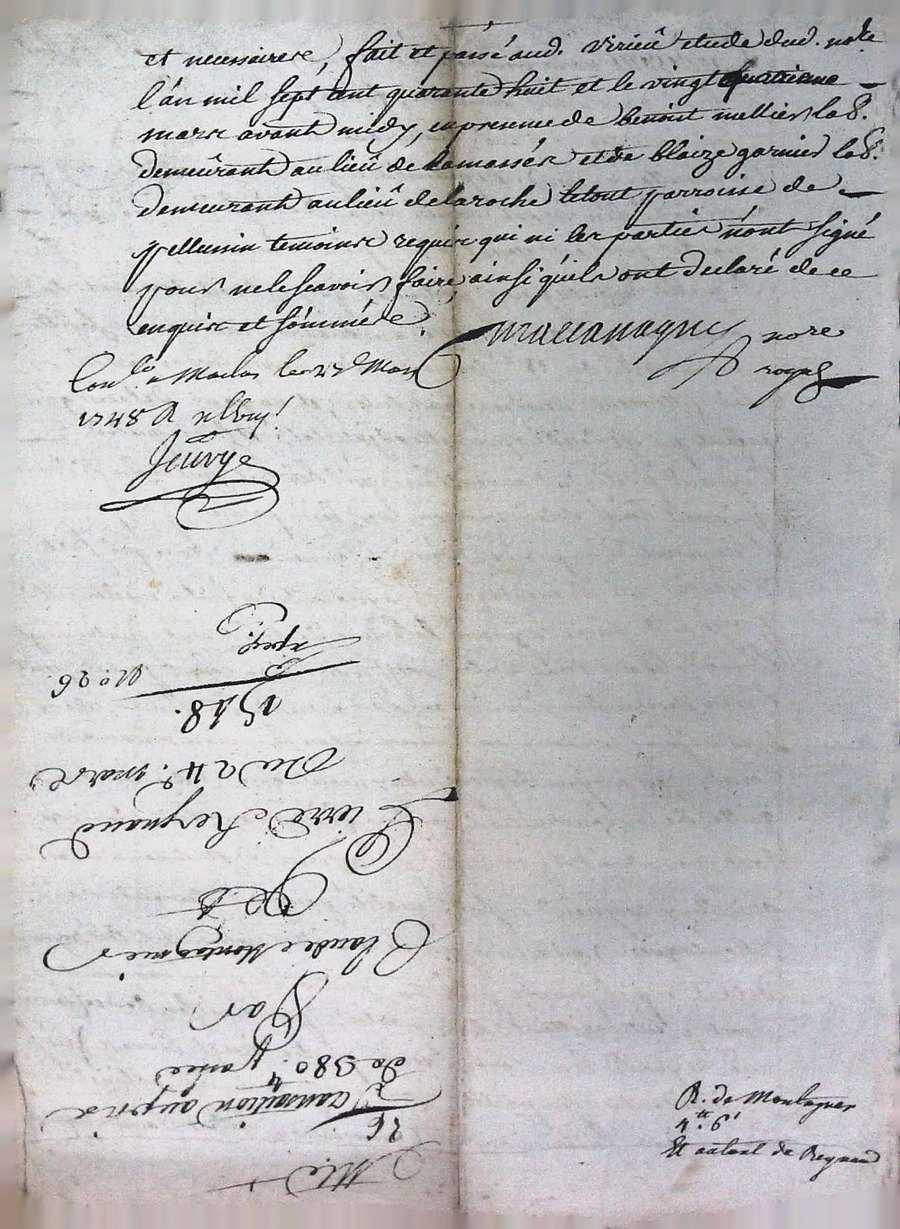 et necessaires, fait et passé aud. virieû etude dud. nore
l'an mil sept cent quarante huit et le vingt quatrieme
mars avant midy, en presence de benoit mellier lab.
demeûrant au lieû de et de blaize garnier lab.
demeurant au lieû de laroche le tout parroisse de
pellussin temoins requis qui ni les parties n'ont signé
pour ne le scavoir faire, ainsi qu'ils ont declaré de ce
enquis et sommés.
nore
royal
Conlé a Maclas le 27 Mars
1748 R
N.o 26
26
Transaction au prix
de 380
Par
Claude Montagnier
Et
Pierre Reynaud
Du 24e. mars
1748.
R. de Montagner
4tt 6s
Et autant de Reynaud